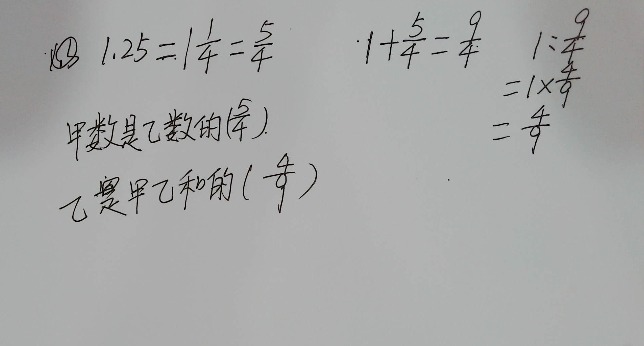 1.25=1 1/4=5/4 1+5/4=9/4 1÷9/4
=1×4/9
甲数是乙数的(5/4).
=4/9
乙是甲乙和的(4/9)